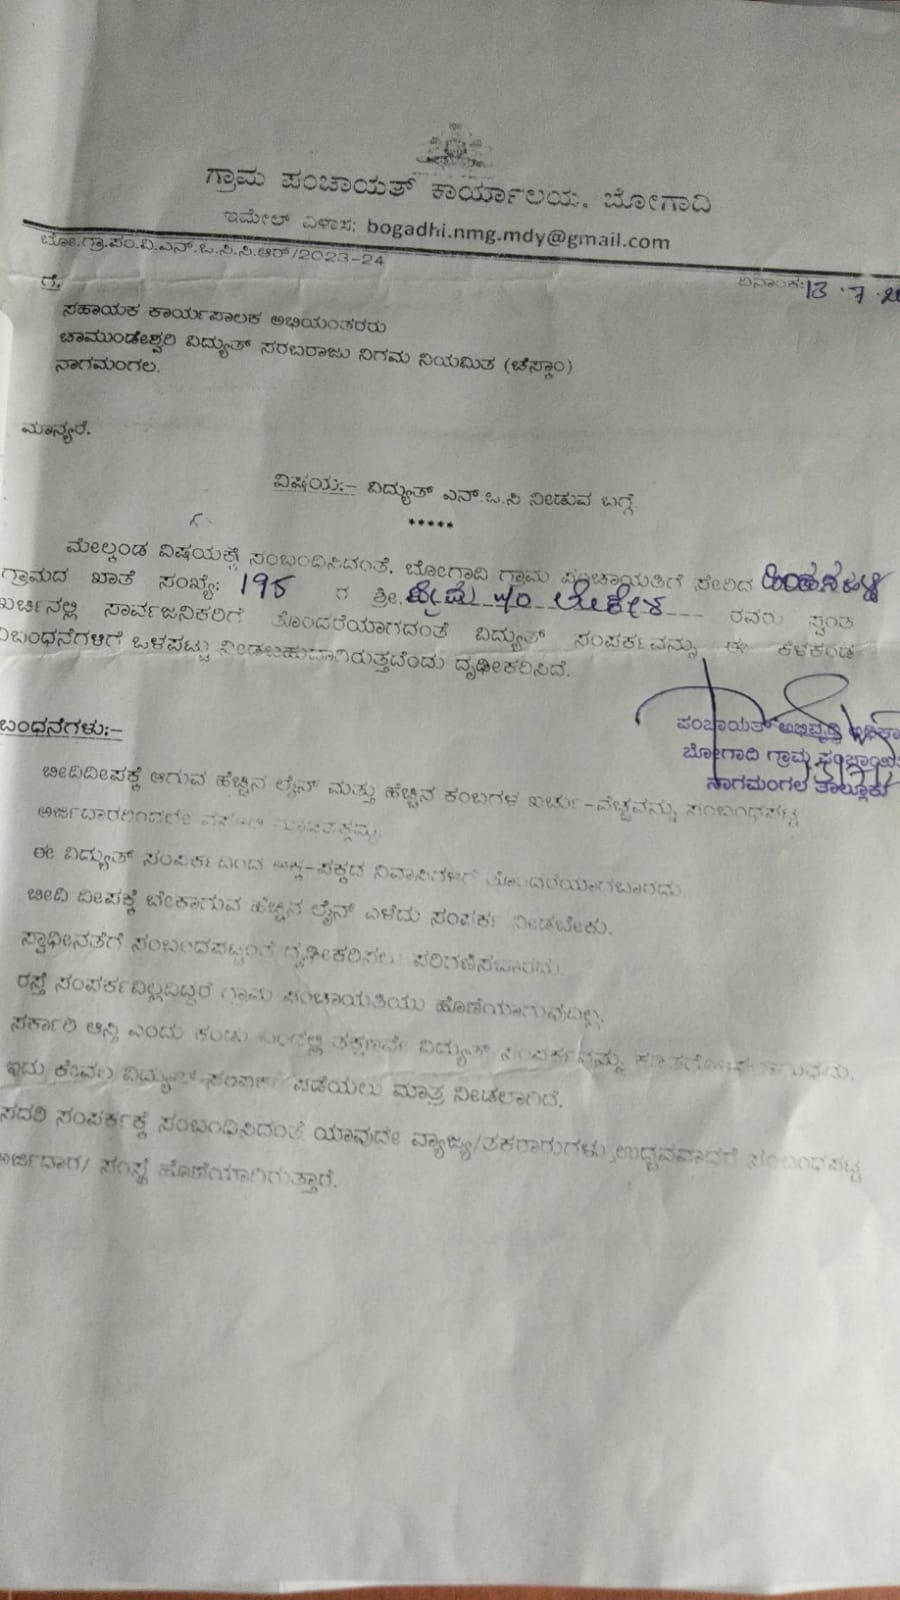 ಗ್ರಾಮ ಪಂಚಾಯತ್ ಕಾರ್ಯಾಲಯ, ಬೋಗಾದಿ
ಇಮೇಲ್ ವಿಳಾಸ: bogadhi.nmg.mdy@gmail.com
ಬೋ.ಗ್ರಾ.ಪಂ.ವಿ.ಎನ್.ಒ.ಸಿ.ಸಿ.ಆರ್/2023-24
ದಿನಾಂಕ:13.7.20
ಗೆ,
ಸಹಾಯಕ ಕಾರ್ಯಪಾಲಕ ಅಭಿಯಂತರರು
ಚಾಮುಂಡೇಶ್ವರಿ ವಿದ್ಯುತ್ ಸರಬರಾಜು ನಿಗಮ ನಿಯಮಿತ (ಚೆಸ್ಕಾಂ)
ನಾಗಮಂಗಲ.
ಮಾನ್ಯರೆ.
ವಿಷಯ:- ವಿದ್ಯುತ್ ಎನ್.ಒ.ಸಿ ನೀಡುವ ಬಗ್ಗೆ
*****
ಮೇಲ್ಕಂಡ ವಿಷಯಕ್ಕೆ ಸಂಬಂದಿಸಿದಂತೆ, ಬೋಗಾದಿ ಗ್ರಾಮ ಪಂಚಾಯತಿಗೆ ಸೇರಿದ
ಗ್ರಾಮದ ಖಾತೆ ಸಂಖ್ಯೆ: 198 ಗ ಶ್ರೀ. ಪ್ರೇಮ w/o ಲೋಕೇಶ ರವರು ಸ್ವಂತ
ಖರ್ಚಿನಲ್ಲಿ ಸಾರ್ವಜನಿಕರಿಗೆ ತೊಂದರೆಯಾಗದಂತೆ ವಿದ್ಯುತ್ ಸಂಪರ್ಕವನ್ನು ಈ ಕೆಳಕಂಡ
ನಿಬಂಧನೆಗಳಿಗೆ ಒಳಪಟ್ಟು ನೀಡಬಹುದಾಗಿರುತ್ತದೆಂದು ದೃಢೀಕರಿಸಿದೆ.
ಪಂಚಾಯತ್ ಅಭಿವೃದ್ಧಿ ಅಧಿಕಾ
ಬೋಗಾದಿ ಗ್ರಾಮ ಪಂಚಾಯಿ
ನಾಗಮಂಗಲ ತಾಲ್ಲೂಕು
ಬಂಧನೆಗಳು:-
ಬೀದಿದೀಪಕ್ಕೆ ಆಗುವ ಹೆಚ್ಚಿನ ಲೈನ್ ಮತ್ತು ಹೆಚ್ಚಿನ ಕಂಬಗಳ ಖರ್ಚು-ವೆಚ್ಚವನ್ನು ಸಂಬಂಧಪಟ್ಟ
ಅರ್ಜಿದಾರರಿಂದಲೇ
ಈ ವಿದ್ಯುತ್ ಸಂಪರ್ಕದಿಂದ ಅಕ್ಕ-ಪಕ್ಕದ ನಿವಾಸಿಗಳಿಗೆ ತೊಂದರೆಯಾಗಬಾರದು.
ಬೀದಿ ದೀಪಕ್ಕೆ ಬೇಕಾಗುವ ಹೆಚ್ಚಿನ ಲೈನ್ ಎಳೆದು ಸಂಪರ್ಕ ನೀಡಬೇಕು.
ಸ್ವಾಧೀನತೆಗೆ ಸಂಬಂದಪಟ್ಟಂತೆ ದೃಢೀಕರಿಸಲು ಪರಿಗಣಿಸಬಾರದು.
ರಸ್ತೆ ಸಂಪರ್ಕವಿಲ್ಲದಿದ್ದರೆ ಗ್ರಾಮ ಪಂಚಾಯತಿಯು ಹೊಣೆಯಾಗುವುದಿಲ್ಲ.
ಸರ್ಕಾರಿ ಆಸ್ತಿ ಎಂದು ಕಂಡು ಬಂದಲ್ಲಿ ತಕ್ಷಣವೇ ವಿದ್ಯುತ್ ಸಂಪರ್ಕವನ್ನು
ಇದು ಕೇವಲ ವಿದ್ಯುತ್ ಸಂಪರ್ಕ ಪಡೆಯಲು ಮಾತ್ರ ನೀಡಲಾಗಿದೆ.
ಸದರಿ ಸಂಪರ್ಕಕ್ಕೆ ಸಂಬಂಧಿಸಿದಂತೆ ಯಾವುದೇ ವ್ಯಾಜ್ಯ/ತಕರಾರುಗಳು ಉದ್ಭವವಾದರೆ ಸಂಬಂಧಪಟ್ಟ
ಅರ್ಜಿದಾರ/ ಸಂಸ್ಥೆ ಹೊಣೆಯಾಗಿರುತ್ತಾರೆ.